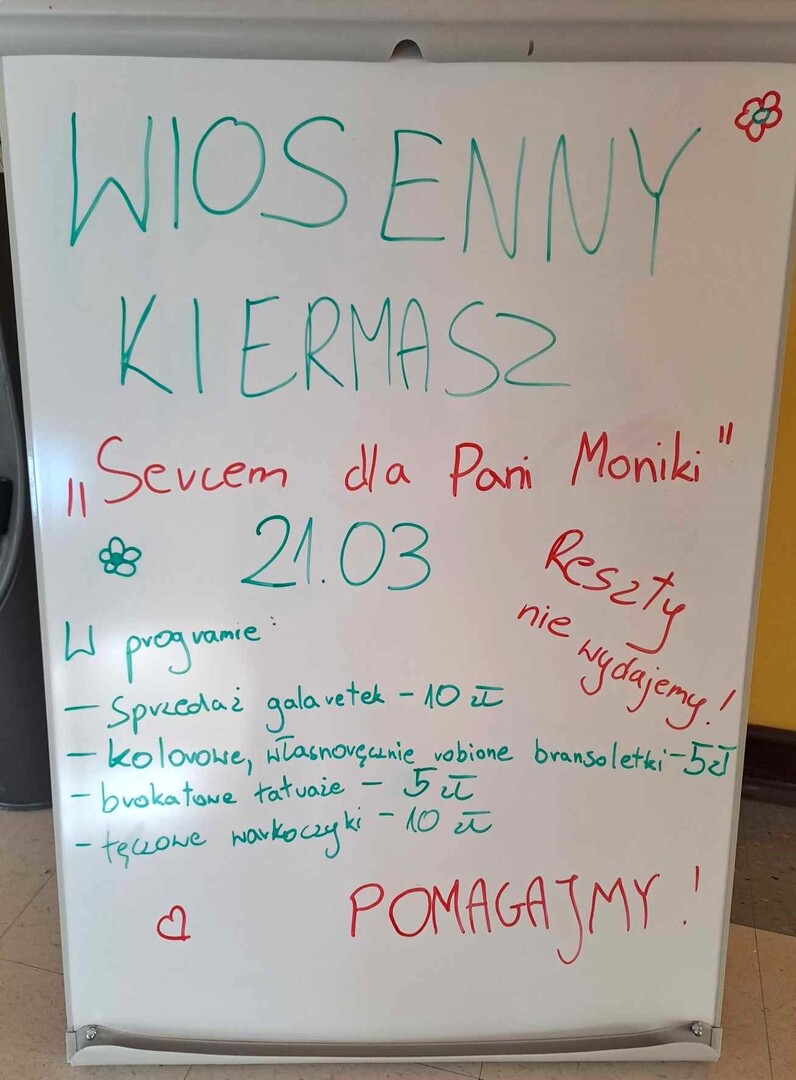 WIOSENNY
KIERMASZ
„Sercem dla Pani Moniki"
21.03
Reszty
nie wydajemy!
W programie:
- Sprzedaż galaretek - 10 zł
- kolorowe, własnoręcznie robione bransoletki - 5 zł
- brokatowe tatuaże - 5 zł
- tęczowe warkoczyki - 10 zł
POMAGAJMY!